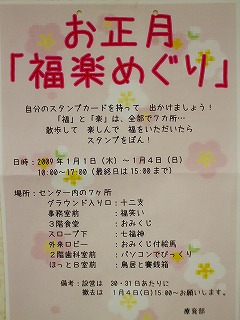 お正月
「福楽めぐり」
自分のスタンプカードを持って 出かけましょう！
「福」と「楽」は、全部で７カ所…
散歩して 楽しんで 福をいただいたら
スタンプをぽん！
日時：2009年1月1日（木）～1月4日（日）
10:00～17:00（最終日は15:00まで）
場所：センター内の７ヶ所
グラウンド入り口：十二支
事務室前：福笑い
３階食堂：おみくじ
スロープ下：七福神
外来ロビー：おみくじ付絵馬
２階歯科室前：パソコンでびっくり
ほっとる室前：鳥居と賽銭箱
備考：設営は 30・31日あたりに
撤去は 1月4日(日)15:00～お願いします。
療育部